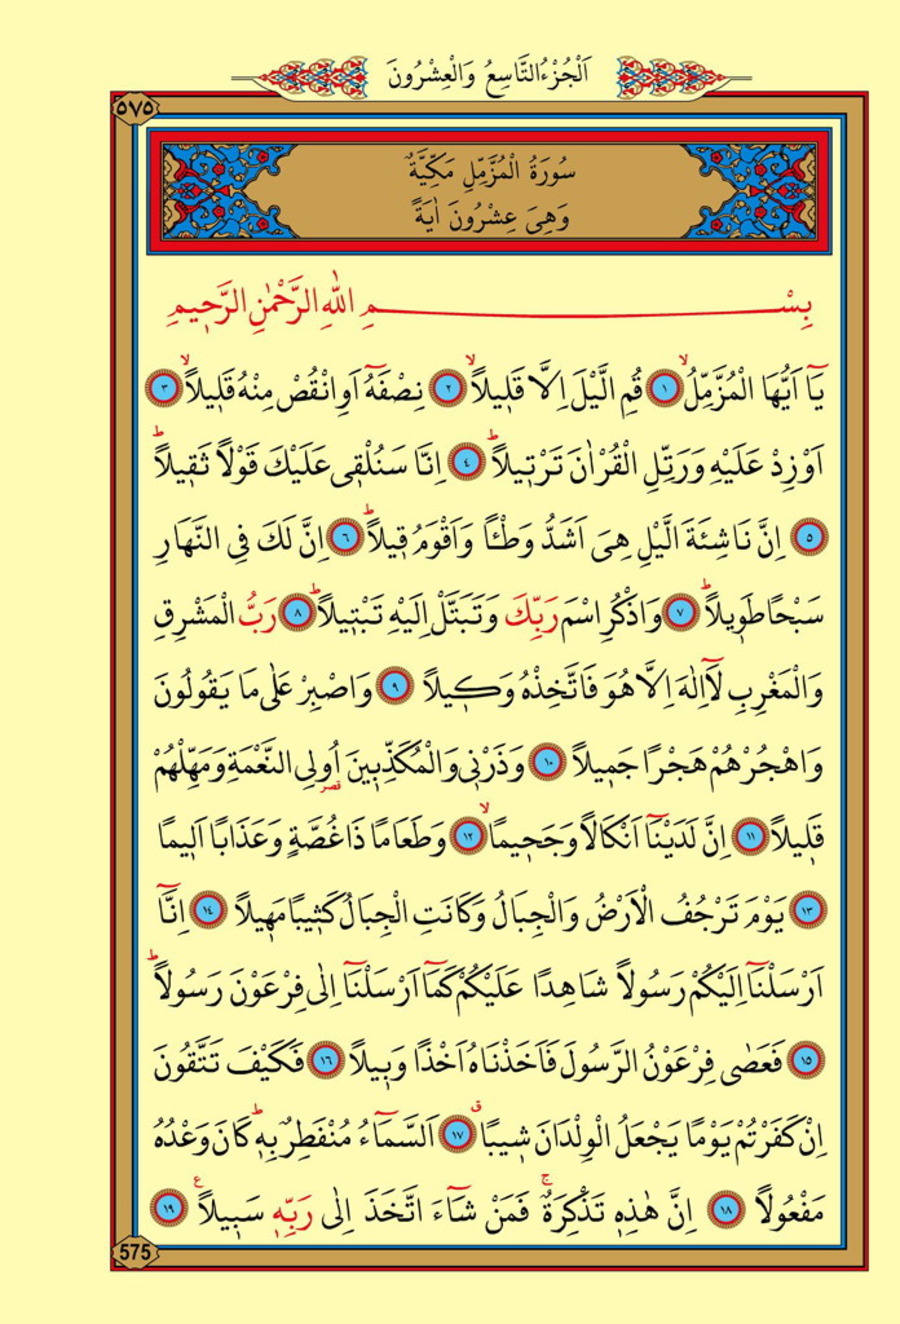 اَلْجُزْءُ التَّاسِعُ وَالْعِشْرُونَ
٥٧٥
سُورَةُ الْمُزَّمِّلِ مَكِّيَّةٌ
وَهِىَ عِشْرُونَ اٰيَةً
بِسْمِ اللّٰهِ الرَّحْمٰنِ الرَّحٖيمِ
يَٓا اَيُّهَا الْمُزَّمِّلُۙ ١ قُمِ الَّيْلَ اِلَّا قَلٖيلاًۙ ٢ نِصْفَهُٓ اَوِ انْقُصْ مِنْهُ قَلٖيلاًۙ ٣
اَوْ زِدْ عَلَيْهِ وَرَتِّلِ الْقُرْاٰنَ تَرْتٖيلاًؕ ٤ اِنَّا سَنُلْقٖى عَلَيْكَ قَوْلاً ثَقٖيلاًؕ
٥ اِنَّ نَاشِئَةَ الَّيْلِ هِىَ اَشَدُّ وَطْـٔاً وَاَقْوَمُ قٖيلاًؕ ٦ اِنَّ لَكَ فِى النَّهَارِ
سَبْحًا طَوٖيلاًؕ ٧ وَاذْكُرِ اسْمَ رَبِّكَ وَتَبَتَّلْ اِلَيْهِ تَبْتٖيلاًؕ ٨ رَبُّ الْمَشْرِقِ
وَالْمَغْرِبِ لَٓا اِلٰهَ اِلَّا هُوَ فَاتَّخِذْهُ وَكٖيلاً ٩ وَاصْبِرْ عَلٰى مَا يَقُولُونَ
وَاهْجُرْهُمْ هَجْرًا جَمٖيلاً ١٠ وَذَرْنٖى وَالْمُكَذِّبٖينَ اُولِى النَّعْمَةِ وَمَهِّلْهُمْ
قصر
قَلٖيلاً ١١ اِنَّ لَدَيْنَٓا اَنْكَالاً وَجَحٖيمًاۙ ١٢ وَطَعَامًا ذَا غُصَّةٍ وَعَذَابًا اَلٖيمًا
١٣ يَوْمَ تَرْجُفُ الْاَرْضُ وَالْجِبَالُ وَكَانَتِ الْجِبَالُ كَثٖيبًا مَهٖيلاً ١٤ اِنَّٓا
اَرْسَلْنَٓا اِلَيْكُمْ رَسُولاً شَاهِدًا عَلَيْكُمْ كَمَٓا اَرْسَلْنَٓا اِلٰى فِرْعَوْنَ رَسُولاًؕ
١٥ فَعَصٰى فِرْعَوْنُ الرَّسُولَ فَاَخَذْنَاهُ اَخْذًا وَبٖيلاً ١٦ فَكَيْفَ تَتَّقُونَ
اِنْ كَفَرْتُمْ يَوْمًا يَجْعَلُ الْوِلْدَانَ شٖيبًاࣗ ١٧ اَلسَّمَٓاءُ مُنْفَطِرٌ بِهٖؕ كَانَ وَعْدُهُ
مَفْعُولاً ١٨ اِنَّ هٰذِهٖ تَذْكِرَةٌۚ فَمَنْ شَٓاءَ اتَّخَذَ اِلٰى رَبِّهٖ سَبٖيلاًࣖ ١٩
575